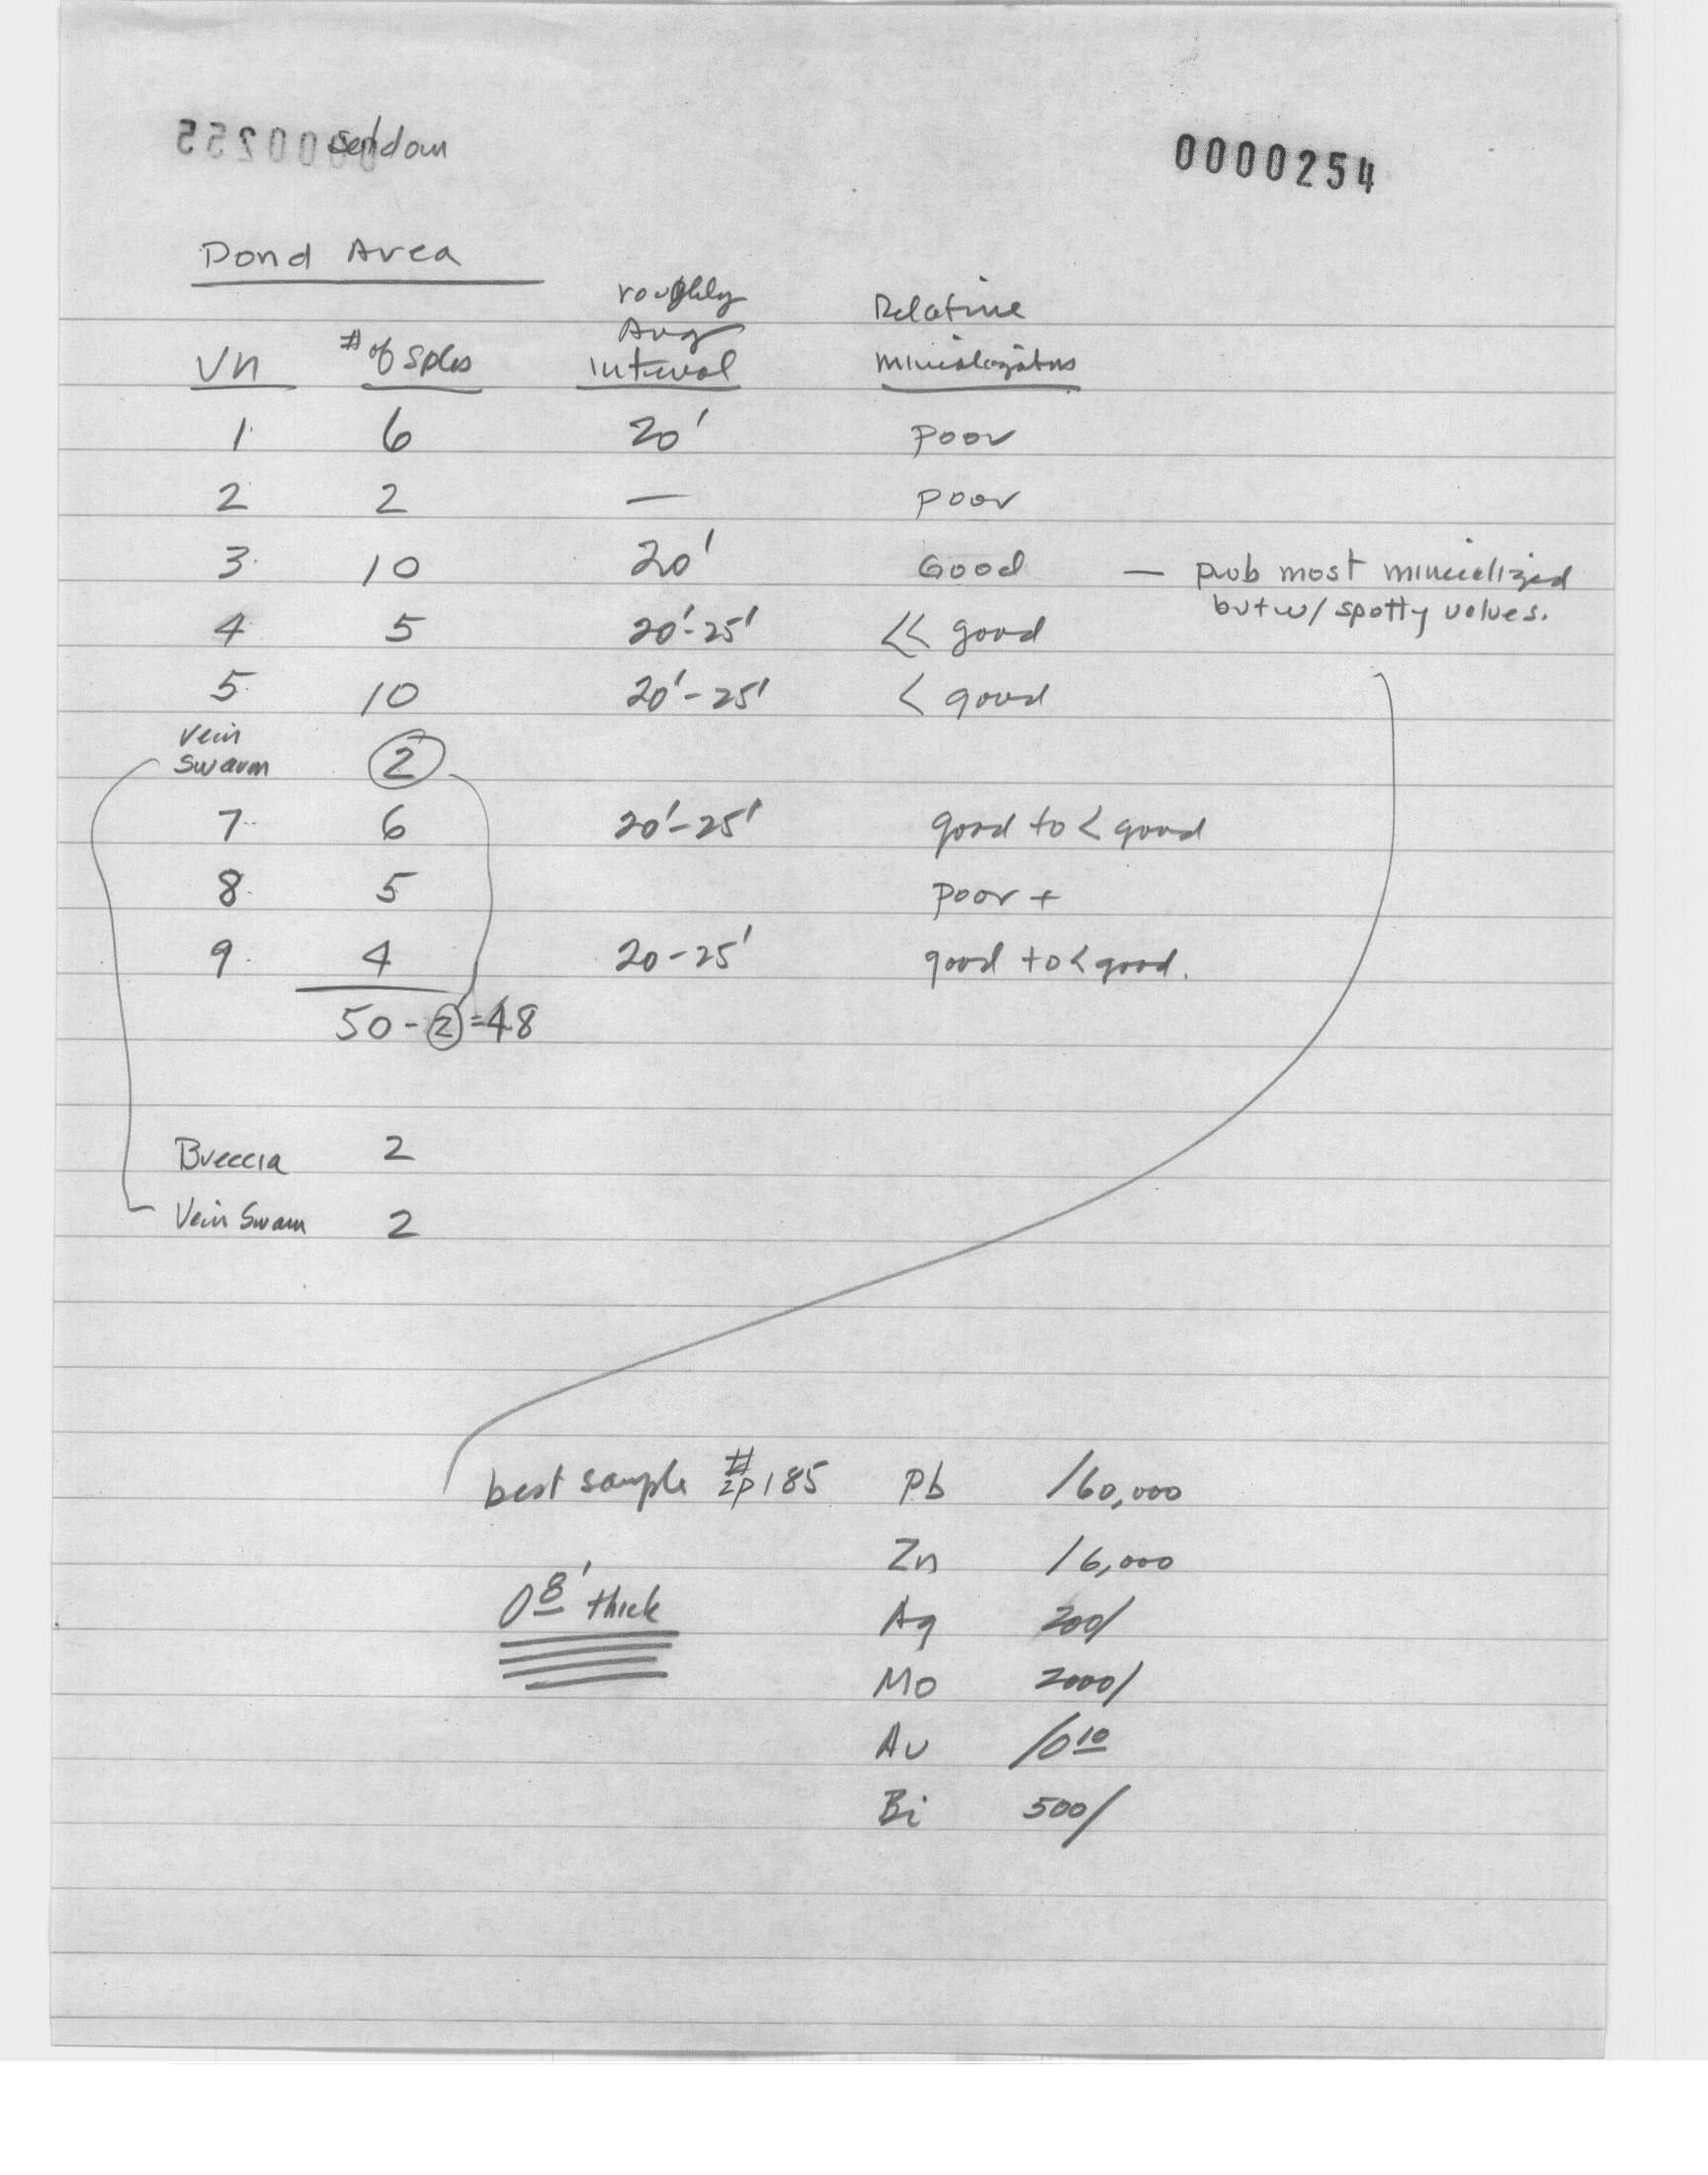 0000254
Pond Area
roughly
Avg Relative
Vn # of Spls interval
1 6 20' Poor
2 2 — Poor
3 10 20' Good — prob most mineralized
but w/ spotty values.
4 5 20'-25' << good
5 10 20'-25' < good
Vein
Swarm 2
7 6 20'-25' good to < good
8 5 Poor +
9 4 20-25' good to < good.
50 - 2 = 48
Breccia 2
Vein Swarm 2
best sample # ZP185 Pb /60,000
Zn /6,000
0 8' thick
Ag 200/
Mo 2000/
Au /0 10
Bi 500/